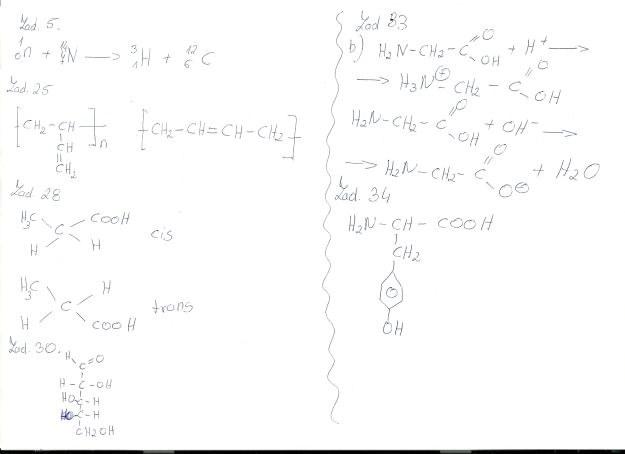 Zad. 5.
¹₀n + ¹⁴₇N → ³₁H + ¹²₆C
Zad. 25
[CH₂-CH]n [CH₂-CH=CH-CH₂]
CH
||
CH₂
Zad. 28
H₃C COOH
C cis
H H
H₃C H
C trans
H COOH
Zad. 30.
H C=O
H-C-OH
HO-C-H
HO-C-H
CH₂OH
Zad 33
b) H₂N-CH₂-C=O OH + H⁺ →
→ H₃N⊕-CH₂-C=O OH
H₂N-CH₂-C=O OH + OH⁻ →
→ H₂N-CH₂-C=O O⊖ + H₂O
Zad. 34
H₂N-CH-COOH
CH₂
OH